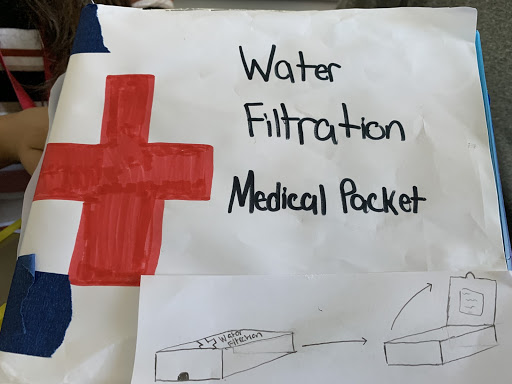 Water
Filtration
Medical Packet
Water
Filtration